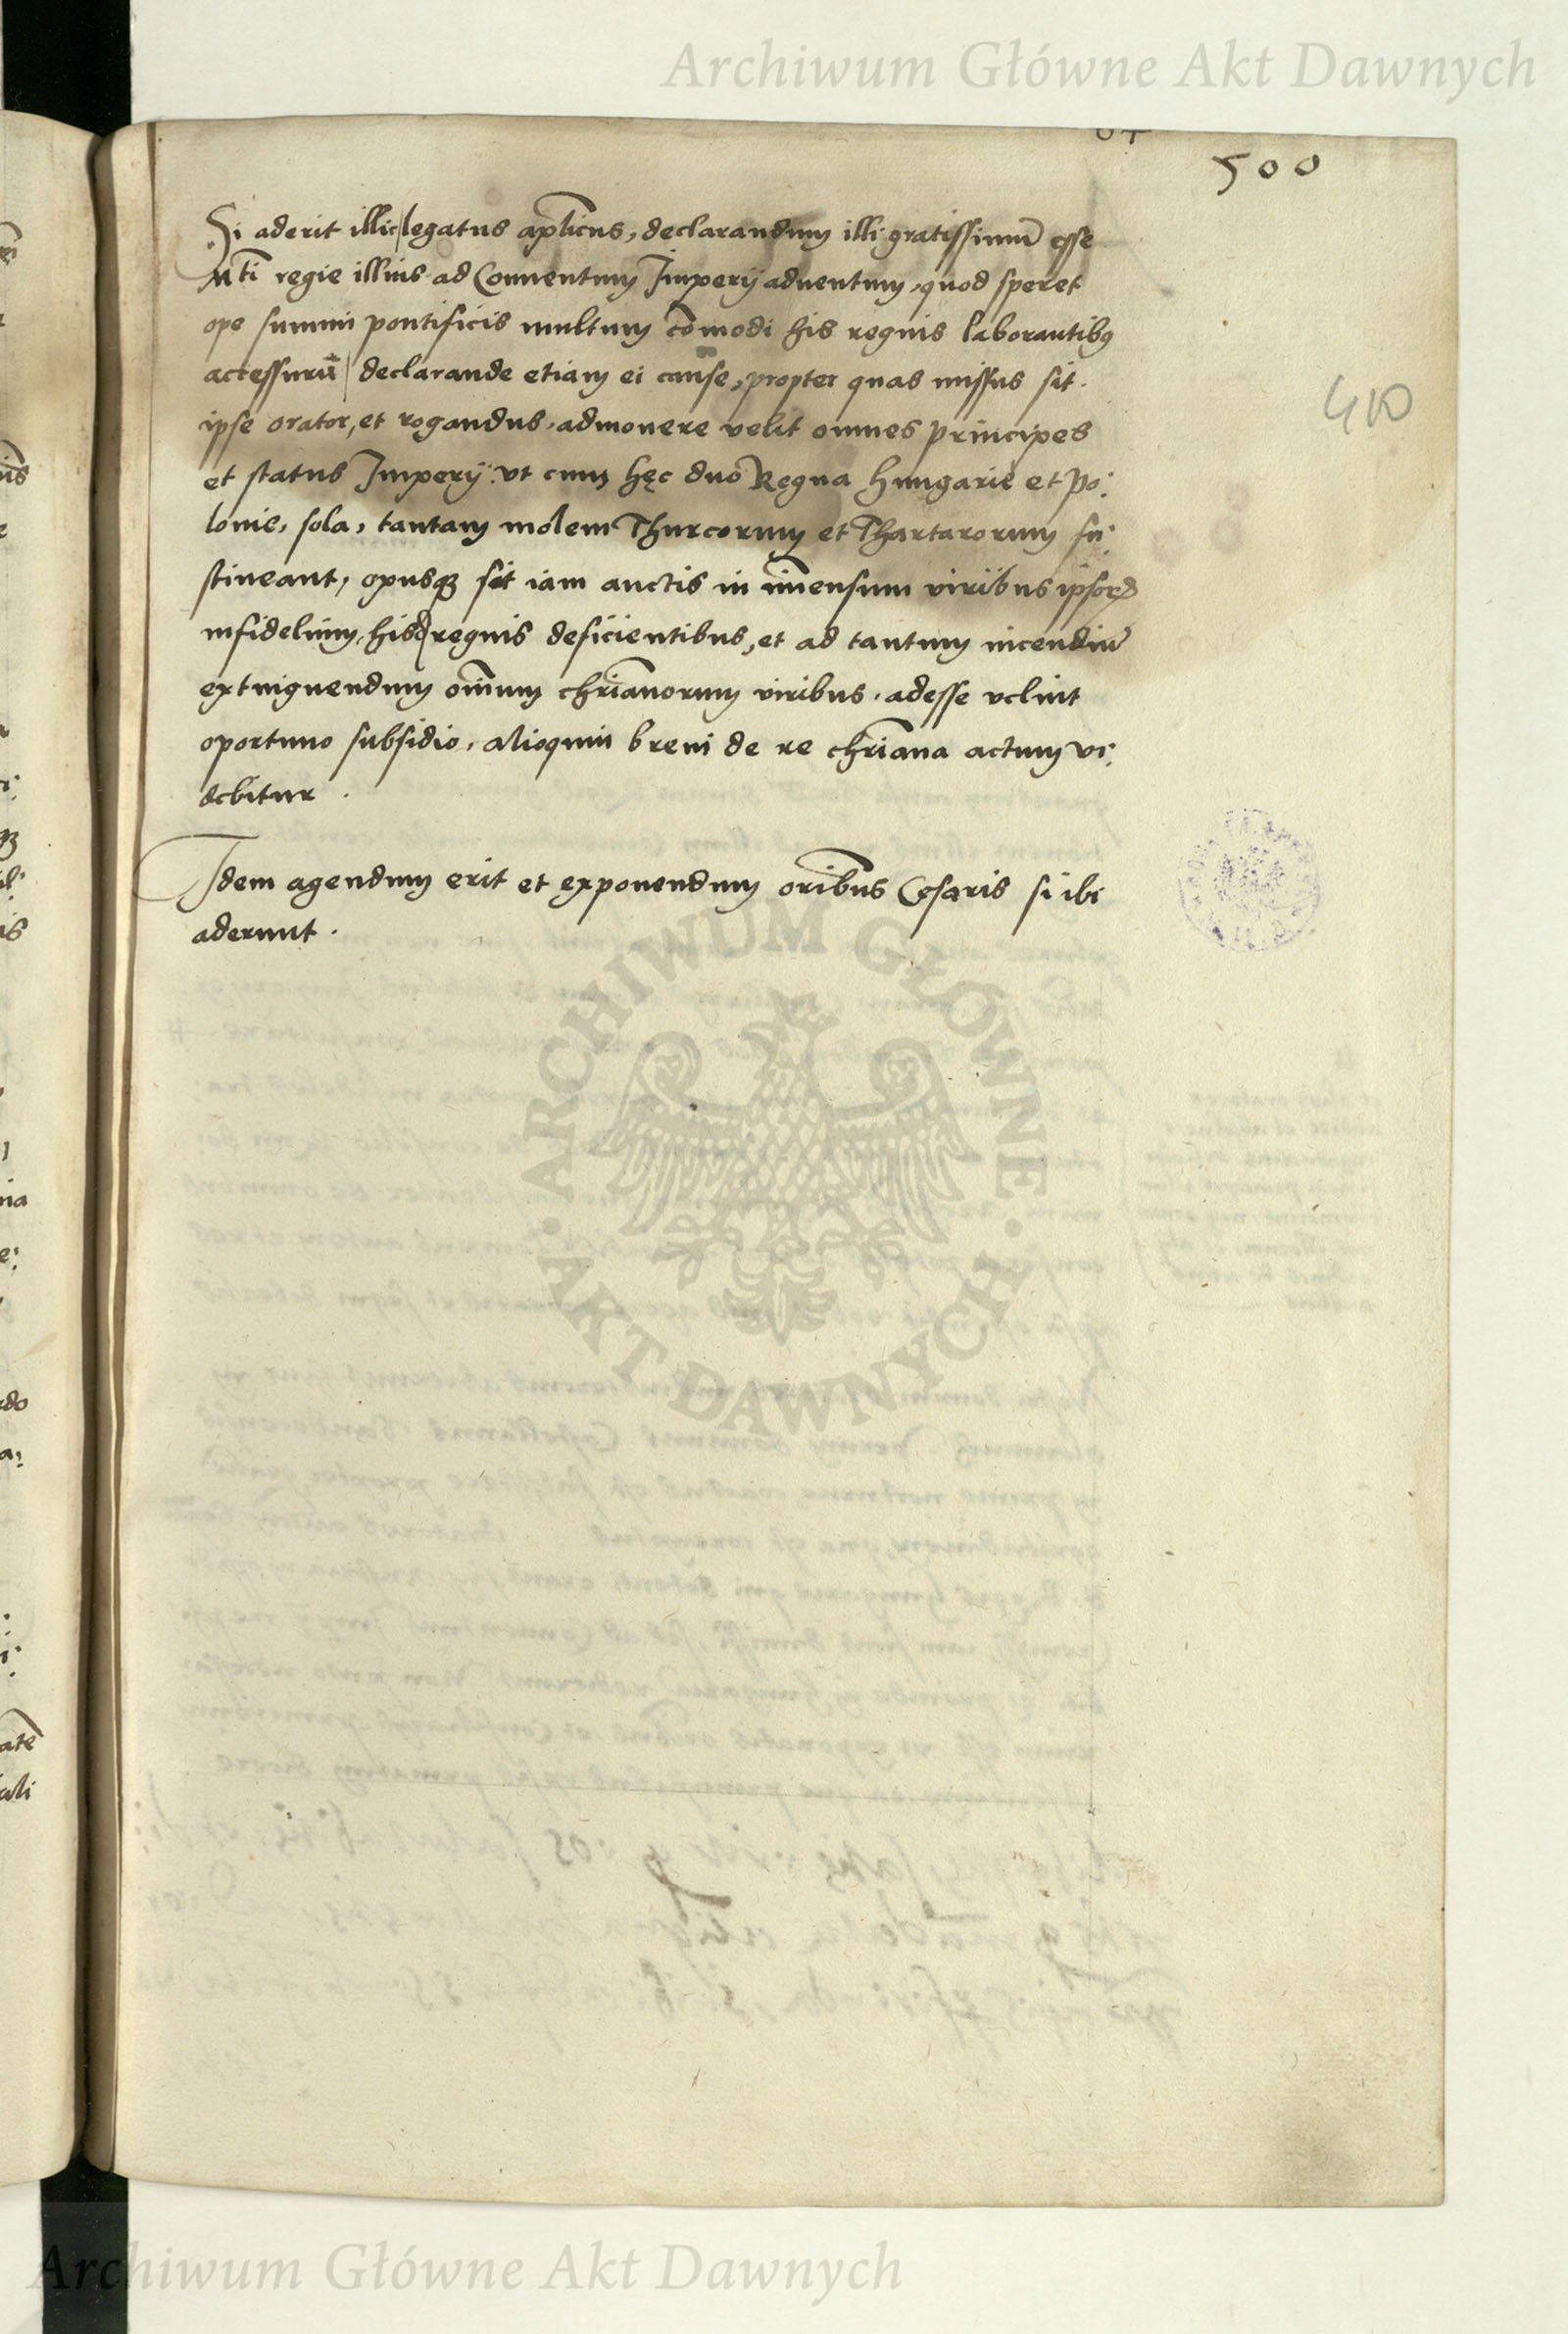 Archiwum Główne Akt Dawnych
500
Si aderit illic legatus aplicus, declarandum illi gratissimū esse
Mti regie illius ad Conuentum Imperij aduentum, quod speret
ope summi pontificis multum cōmodi his regnis laborantibꝯ
accessurū declarande etiam ei cause, propter quas missus sit.
410
ipse orator, et rogandus, admonere velit omnes principes
et status Imperij: vt cum hęc duo Regna Hungarie et Po:
lonie, sola, tantam molem Thurcorum et Thartarorum su:
stineant, opusqꝫ sit iam auctis in īmensum viribus ipsorꝝ
infidelium, hisqꝫ regnis deficientibus, et ad tantum incendiū
extinguendum oīnum chrīanorum viribus, adesse velint
oportuno subsidio, alioquin breui de re chrīana actum vi:
debitur.
Idem agendum erit et exponendum orībus Cesaris si ibi
aderunt.
ARCHIWUM GŁÓWNE
AKT DAWNYCH
Archiwum Główne Akt Dawnych